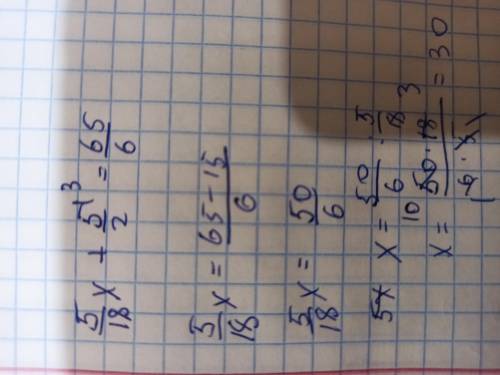 5/18 x + 5/2 ³ = 65/6
5/18 x = 65-15/6
5/18 x = 50/6
5x x = 50/6 : 5/18
x = 10 50 · 18 3/6 · 5 1 1 = 30